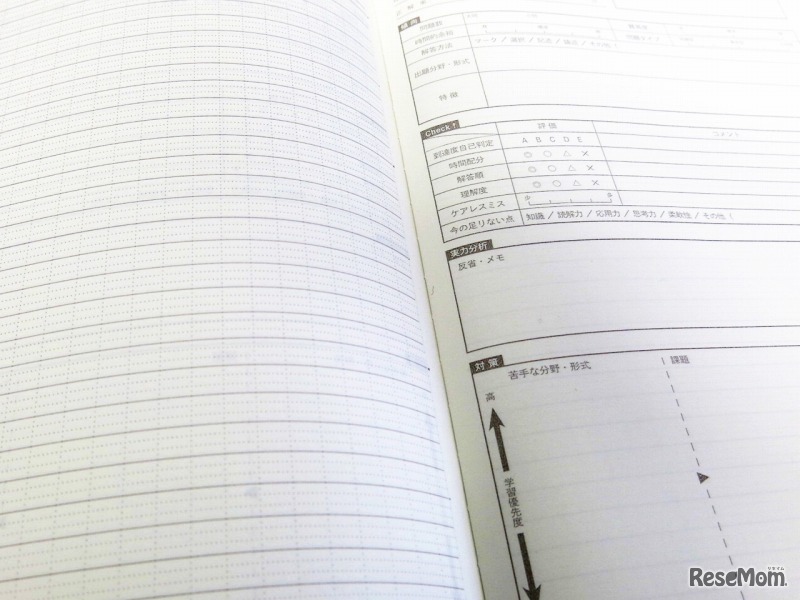 傾向
時間的余裕
解答方法
マーク / 選択 / 記述 / 論述 / その他（
出題分野・形式
特 徴
Check↑
評価
コメント
到達度自己判定
A B C D E
時間配分
◎ ○ △ ×
解答順
◎ ○ △ ×
理解度
◎ ○ △ ×
ケアレスミス
少
今の足りない点
知識 / 読解力 / 応用力 / 思考力 / 柔軟性 / その他（
実力分析
反省・メモ
対 策
苦手な分野・形式
課題
高
学習優先度
ReseMom.
リセマム